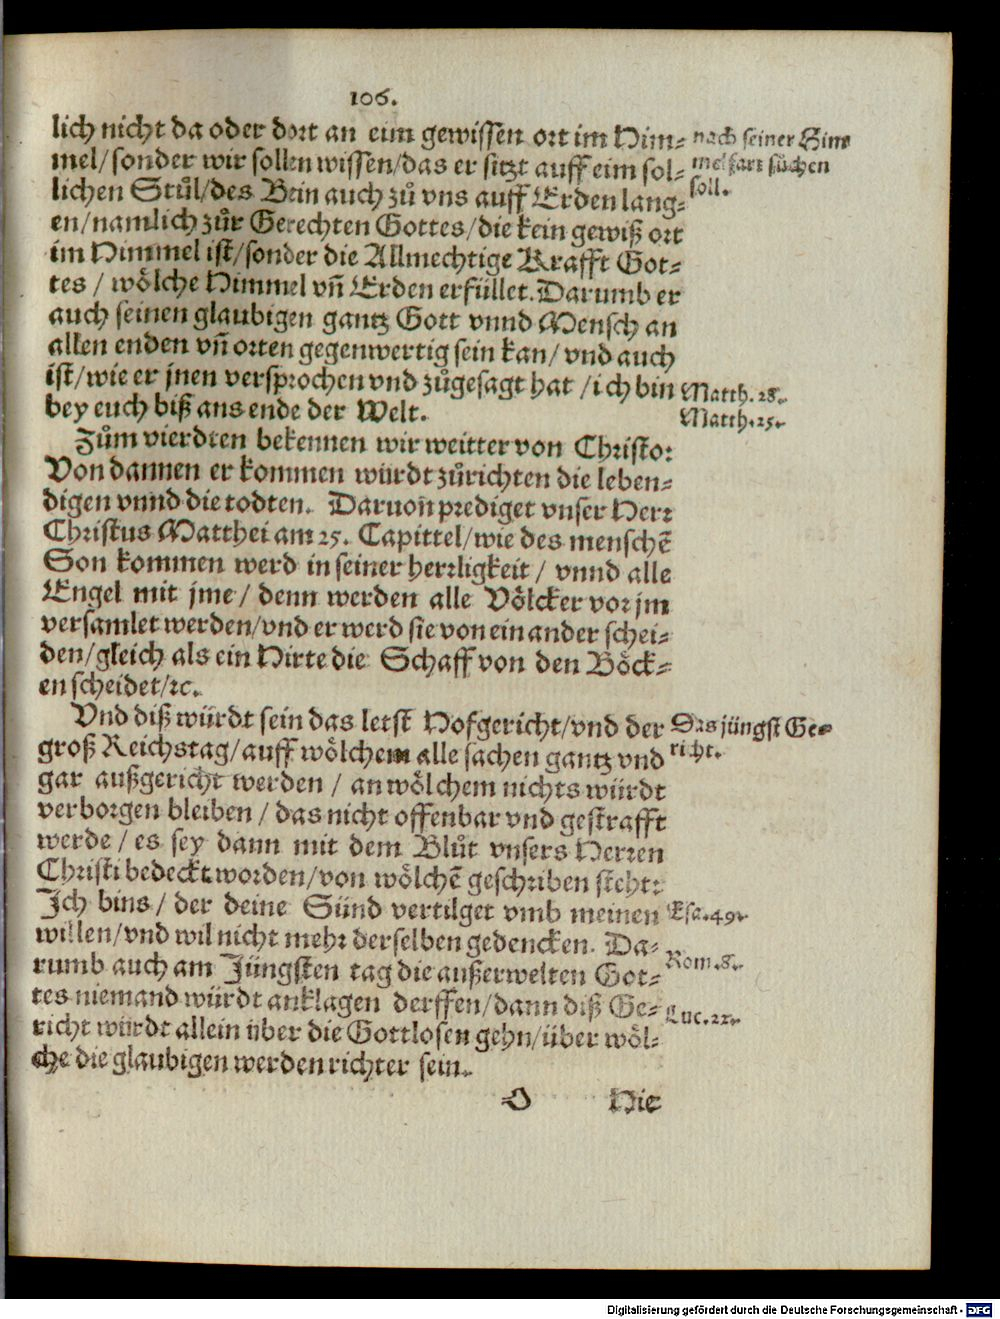 106.
lich nicht da oder dort an eim gewissen ort im Him-
mel/ sonder wir sollen wissen/ das er sitzt auff eim sol-
lichen Stůl/ des Bein auch zů vns auff Erden lang-
en/ namlich zůr Gerechten Gottes/ die kein gewiß ort
im Himmel ist/ sonder die Allmechtige Krafft Got-
tes / wölche Himmel vñ Erden erfüllet. Darumb er
auch seinen glaubigen gantz Gott vnnd Mensch an
allen enden vñ orten gegenwertig sein kan/ vnd auch
ist/ wie er jnen versprochen vnd zůgesagt hat / ich bin
bey euch biß ans ende der Welt.
Zům vierdten bekennen wir weitter von Christo:
Von dannen er kommen würdt zůrichten die leben-
digen vnnd die todten. Daruon prediget vnser Herr
Christus Matthei am 25. Capittel/ wie des menschē
Son kommen werd in seiner herrligkeit / vnnd alle
Engel mit jme / denn werden alle Völcker vor jm
versamlet werden/ vnd er werd sie von ein ander schei-
den/ gleich als ein Hirte die Schaff von den Böck-
en scheidet/ ꝛc.
Vnd diß würdt sein das letst Hofgericht/ vnd der
groß Reichstag/ auff wölchem alle sachen gantz vnd
gar außgericht werden / an wölchem nichts würdt
verborgen bleiben / das nicht offenbar vnd gestrafft
werde / es sey dann mit dem Blůt vnsers Herren
Christi bedeckt worden/ von wölchē geschriben steht:
Ich bins / der deine Sünd vertilget vmb meinen
willen/ vnd wil nicht mehr derselben gedencken. Da-
rumb auch am Jüngsten tag die außerwelten Got-
tes niemand würdt anklagen derffen/ dann diß Ge-
richt würdt allein über die Gottlosen gehn/ über wöl-
che die glaubigen werden richter sein.
O Hie
nach seiner Him
melfart süchen
soll.
Matth. 28.
Matth. 25.
Das jüngst Ge-
richt.
Esa. 49.
Rom. 8.
Luc. 22.
Digitalisierung gefördert durch die Deutsche Forschungsgemeinschaft - DFG